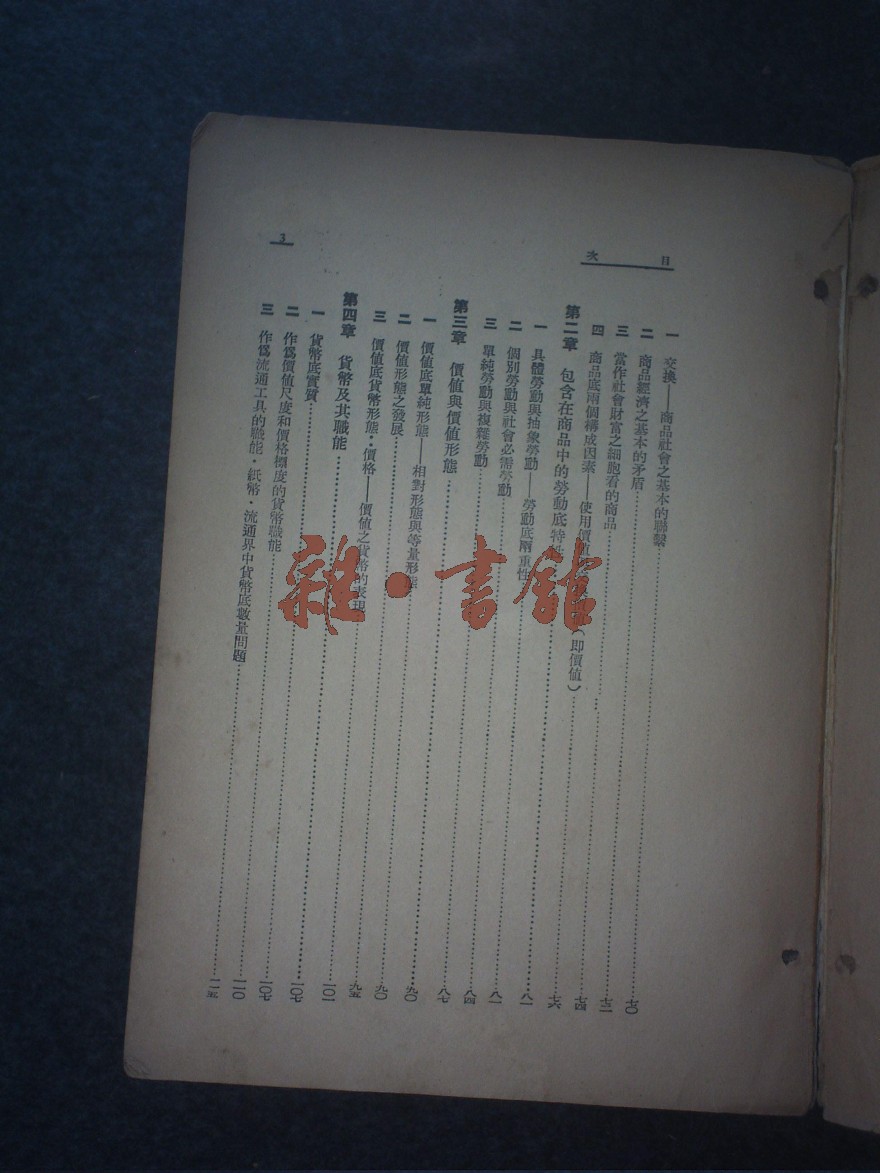 目次
一 交換——商品社會之基本的聯繫……七〇
二 商品經濟之基本的矛盾……七二
三 當作社會財富之細胞看的商品……七四
四 商品底兩個構成因素——使用價值（即價值）……七六
第二章 包含在商品中的勞動底特性……八一
一 具體勞動與抽象勞動——勞動底兩重性……八一
二 個別勞動與社會必需勞動……八四
三 單純勞動與複雜勞動……八七
第三章 價值與價值形態……九〇
一 價值底單純形態——相對形態與等量形態……九〇
二 價值形態之發展……九五
三 價值底貨幣形態··價格——價值之貨幣的表現……一〇一
第四章 貨幣及其職能……一〇七
一 貨幣底實質……一〇七
二 作爲價值尺度和價格標度的貨幣職能……一一〇
三 作爲流通工具的職能·紙幣·流通界中貨幣底數量問題……一一五
3
雜·書館